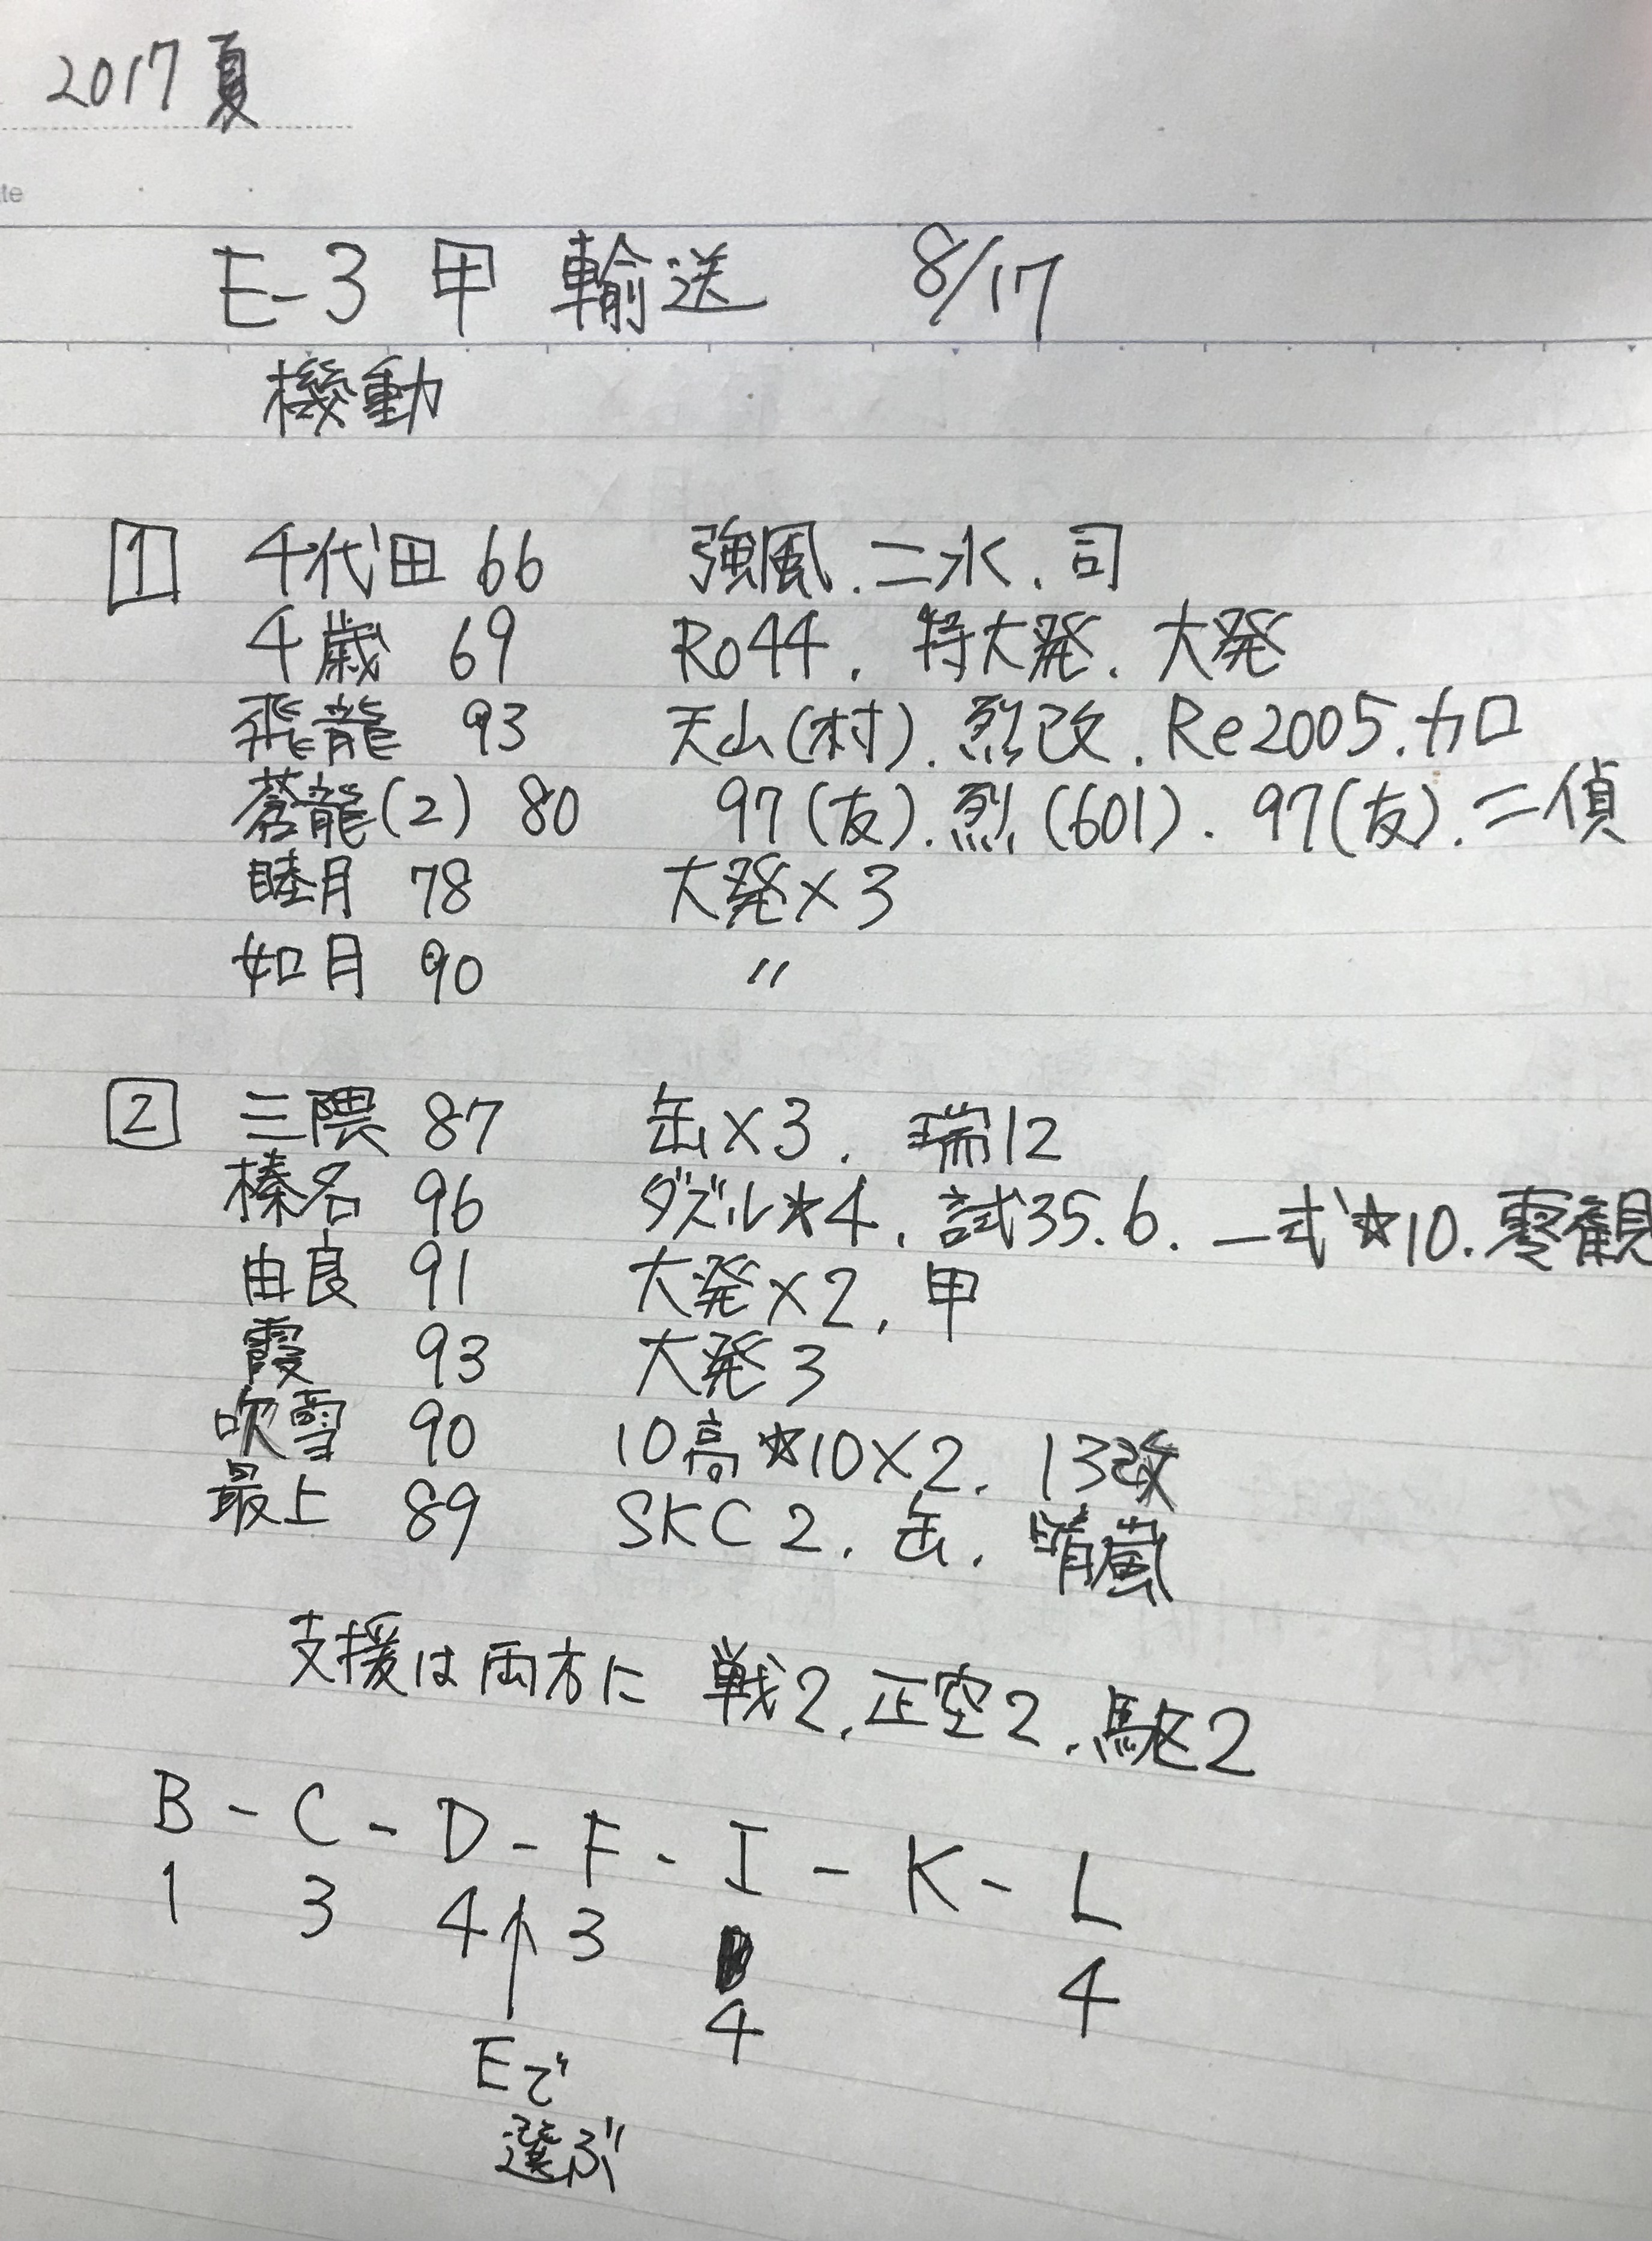 2017 夏
te
E-3 甲 輸送 8/17
機動
1 千代田 66 強風.二水.司
千歳 69 Ro44.特大発.大発
飛龍 93 天山(村).烈改.Re2005.カロ
蒼龍(2) 80 97(友).烈(601).97(友).二偵
睦月 78 大発×3
如月 90 〃
2 三隈 87 缶×3.瑞12
榛名 96 ダズル★4.試35.6.一式★10.零観
由良 91 大発×2.甲
霞 93 大発3
吹雪 90 10高★10×2.13改
最上 89 SKC2.缶.晴嵐
支援は両方に 戦2.正空2.駆2
B - C - D - F - I - K - L
1 3 4 ↑ 3 4 4
Eで
選ぶ